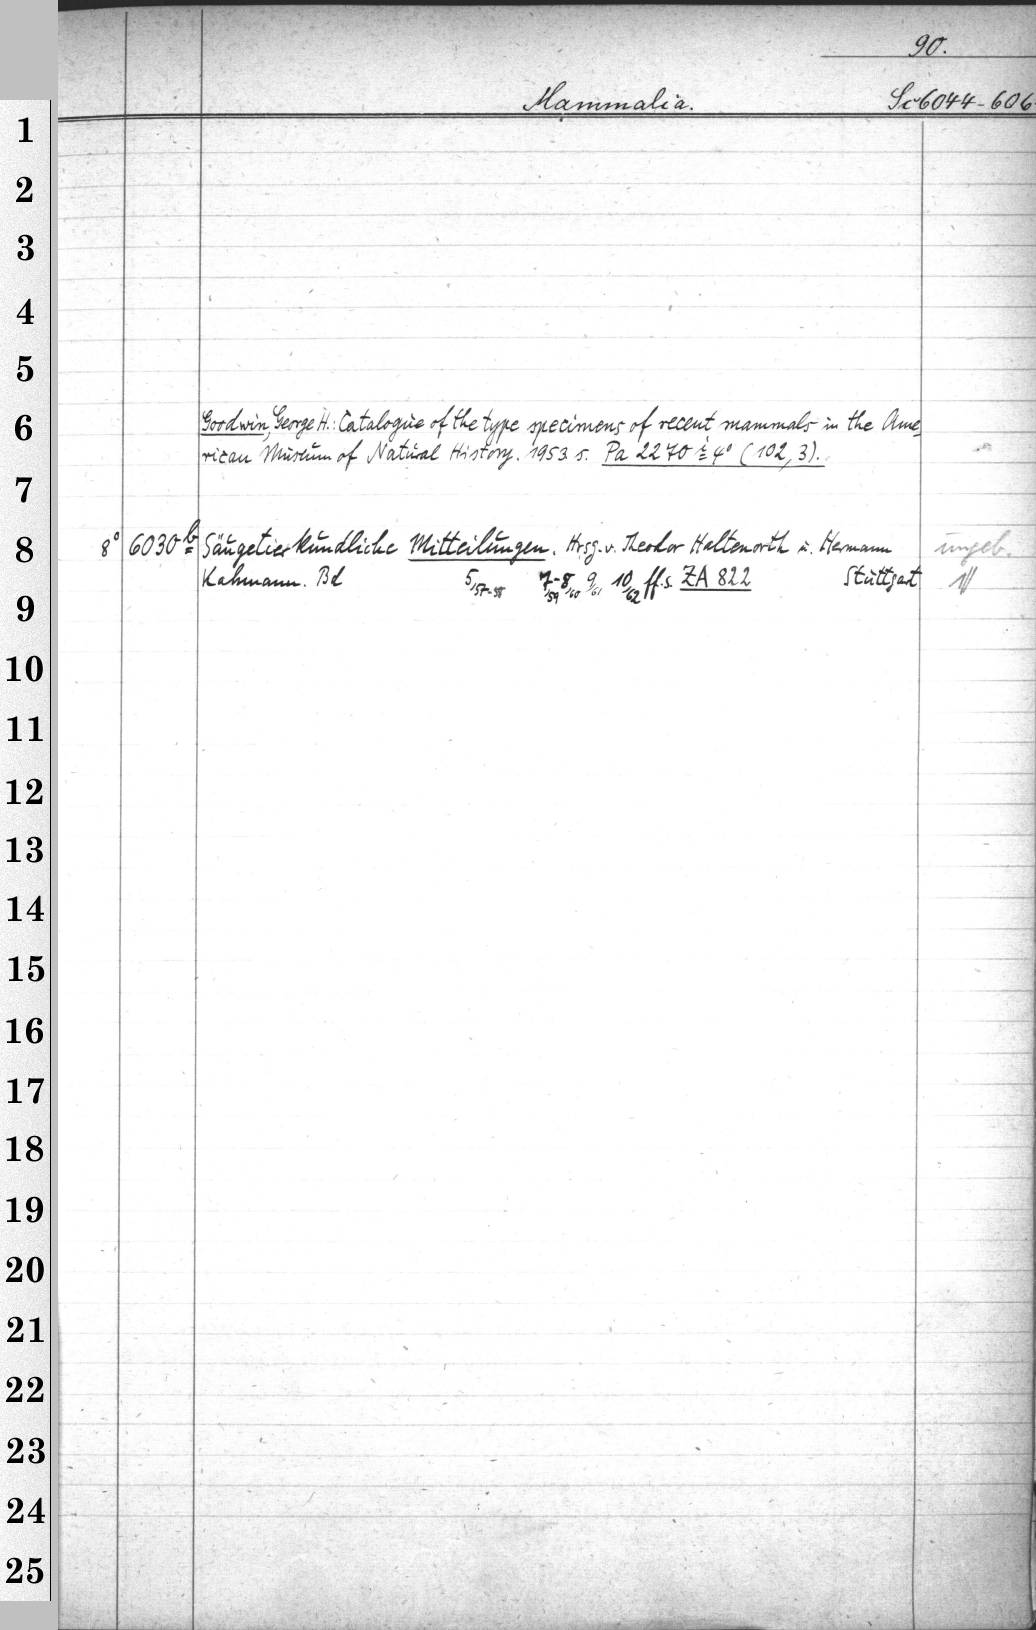 90.
Mammalia. Sc6044-606
1
2
3
4
5
6
Goodwin, George H.: Catalogue of the type specimens of recent mammals in the Ame-
rican Museum of Natural History. 1953 s. Pa 2270 i 4° (102, 3).
7
8
8° 6030 b Säugetierkundliche Mitteilungen. Hrsg. v. Theodor Haltenorth u. Hermann ungeb.
Kahmann. Bd 5/57-58 7-8/59/60 9/61 10/62 ff. s. ZA 822 Stuttgart
9
10
11
12
13
14
15
16
17
18
19
20
21
22
23
24
25